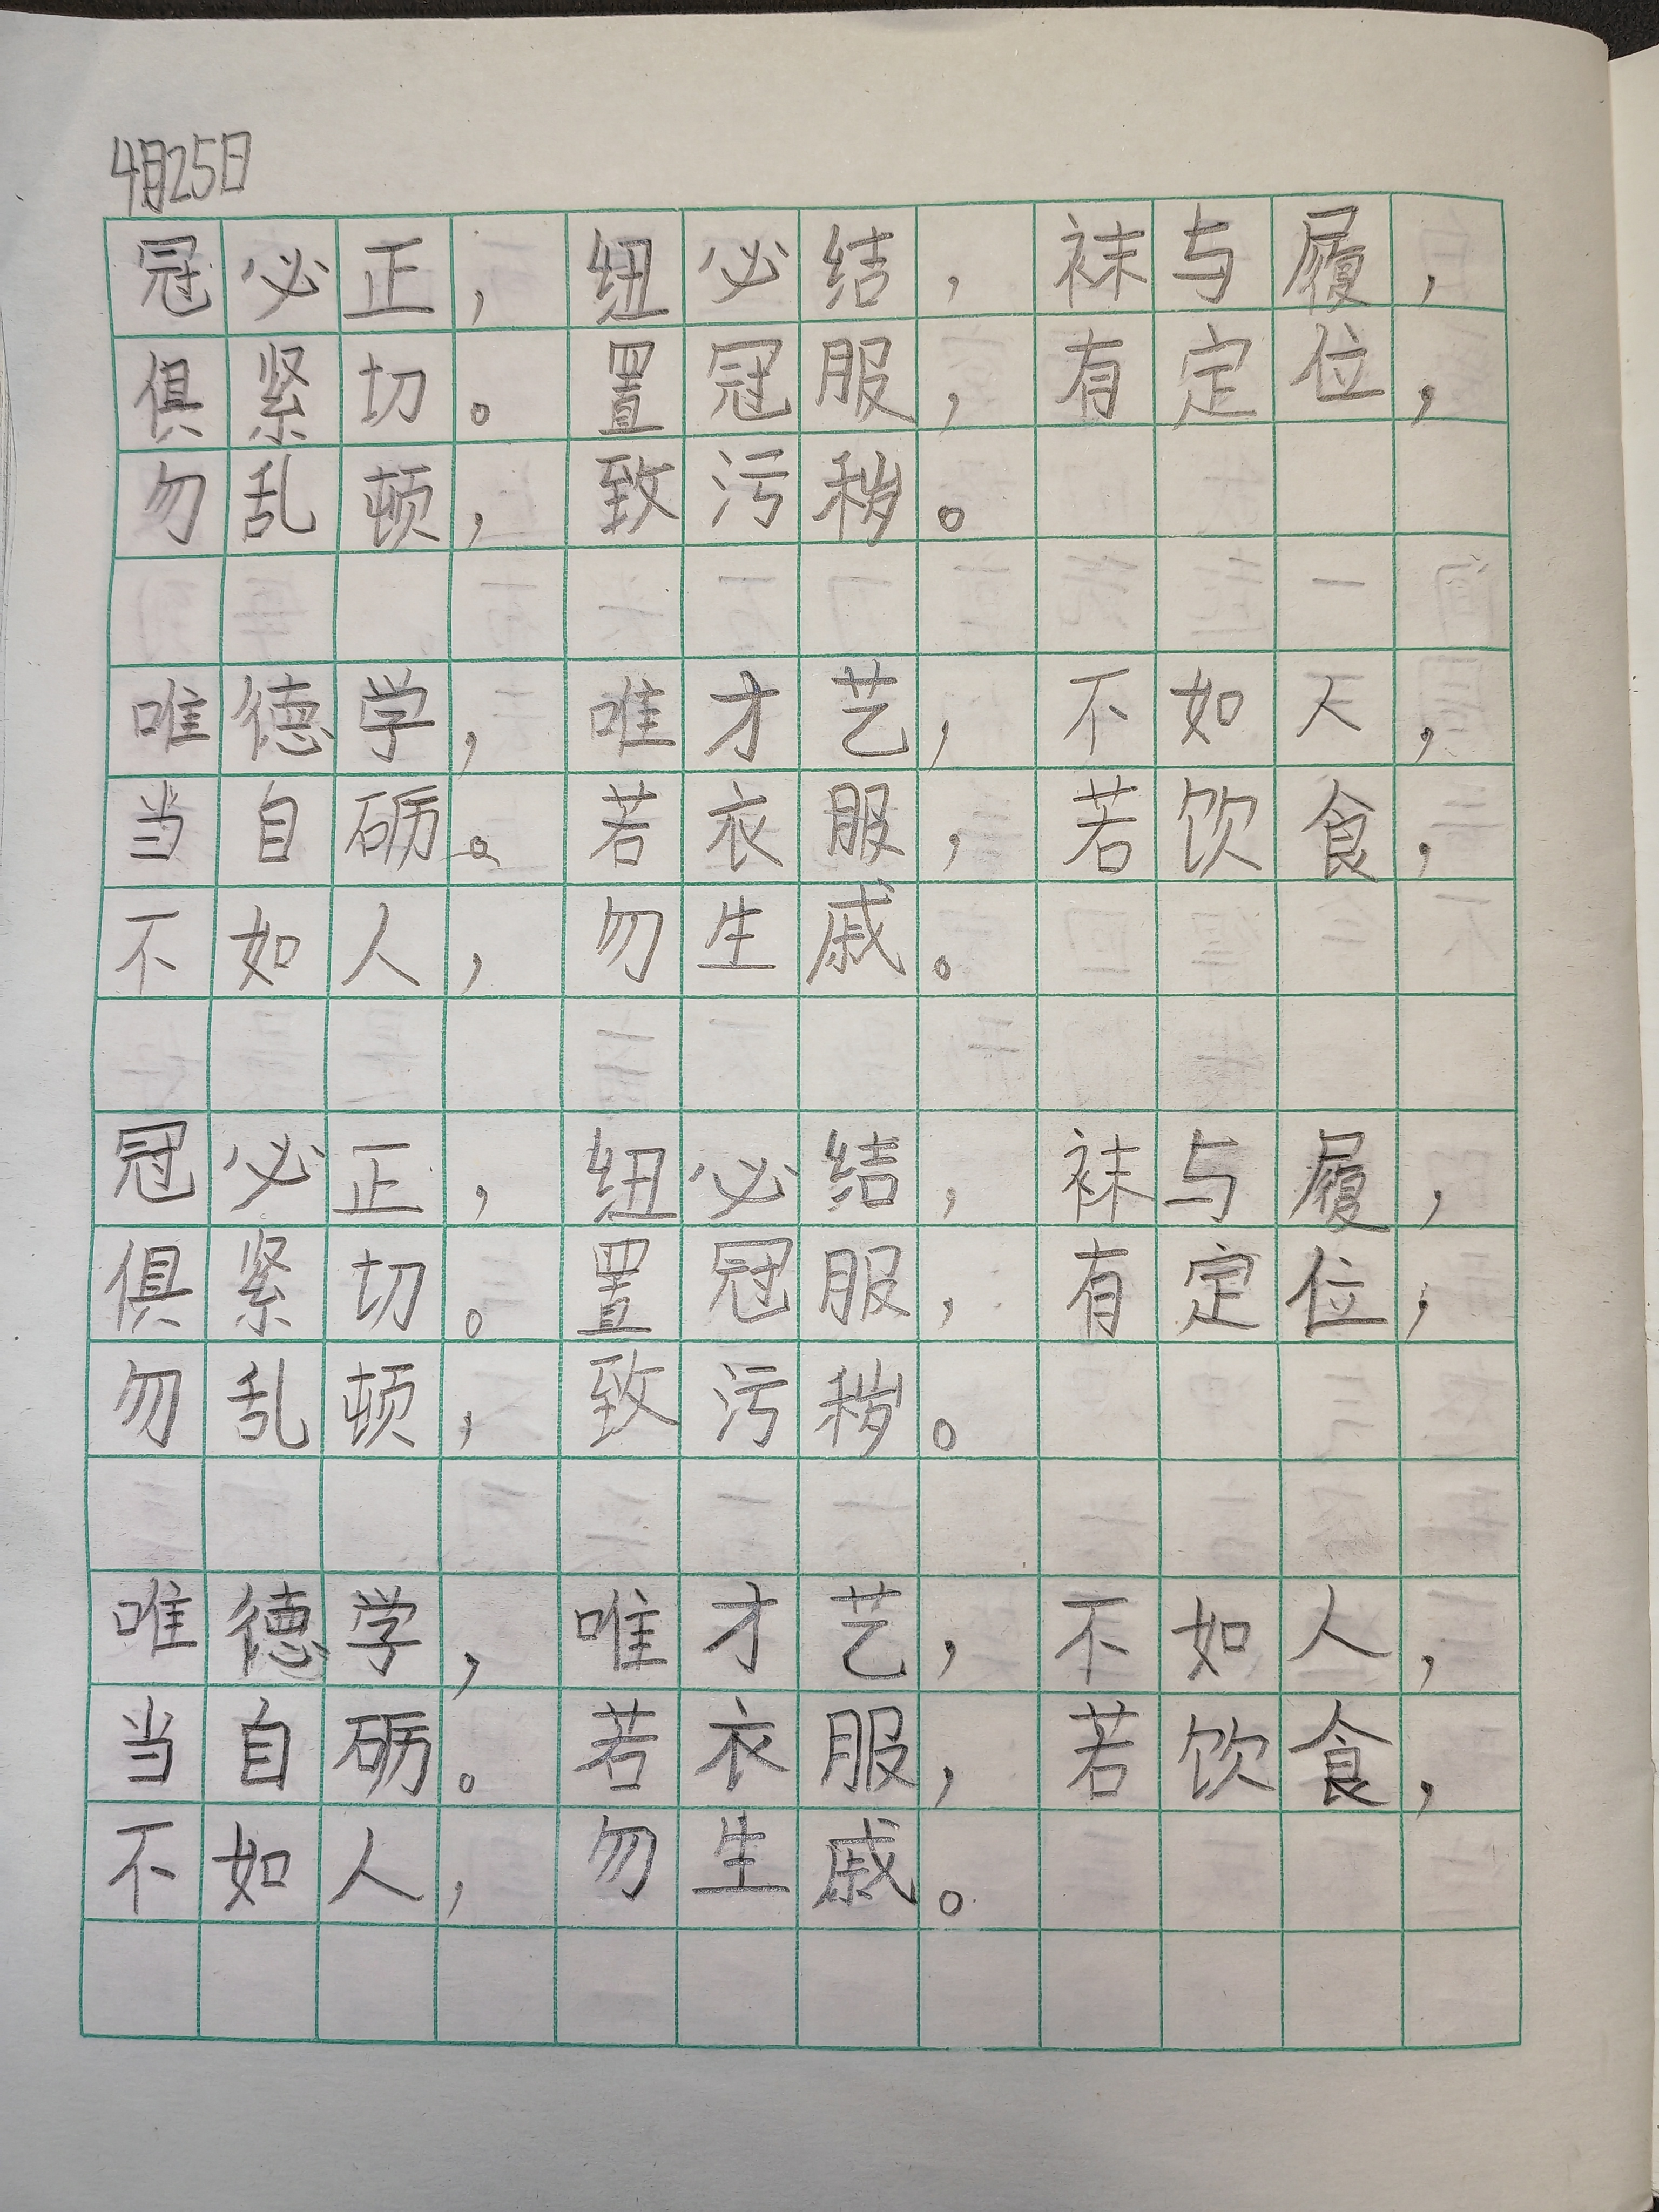 4月25日
冠必正，纽必结，袜与履，
俱紧切。置冠服，有定位，
勿乱顿，致污秽。
唯德学，唯才艺，不如人，
当自砺。若衣服，若饮食，
不如人，勿生戚。
冠必正，纽必结，袜与履，
俱紧切。置冠服，有定位，
勿乱顿，致污秽。
唯德学，唯才艺，不如人，
当自砺。若衣服，若饮食，
不如人，勿生戚。